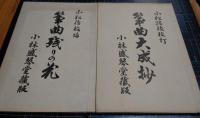 小松景和校訂
箏曲大成抄
小林盛琴堂蔵版
小松景和編
箏曲残りの花
小林盛琴堂蔵版